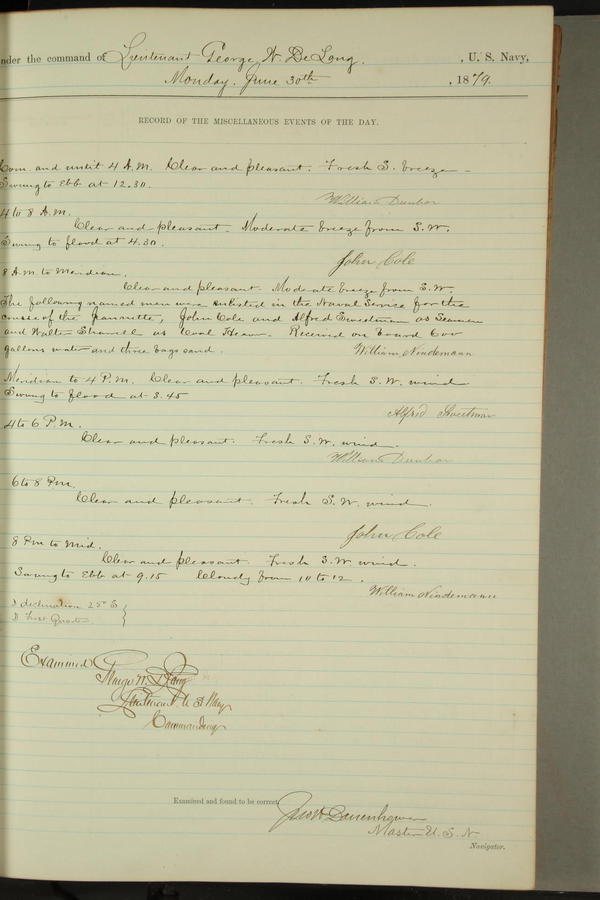 nder the command of Lieutenant George W. De Long. , U. S. Navy,
Monday. June 30th , 1879.
RECORD OF THE MISCELLANEOUS EVENTS OF THE DAY.
Com. and until 4 A.M. Clear and pleasant. Fresh S. breeze -
Swung to Ebb at 12.30.
William Dunbar
4 to 8 A.M.
Clear and pleasant. Moderate breeze from S.W.
Swung to flood at 4.30.
John Cole
8 A.M. to Meridian.
Clear and pleasant. Moderate breeze from S.W.
The following named men were enlisted in the Naval Service for the
cruise of the Jeannette, John Cole and Alfred Sweetman as Seamen
and Walter as Coal Heaver. Received on board 600
gallons water and three bags sand.
William Nindemann
Meridian to 4 P.M. Clear and pleasant. Fresh S.W. wind
Swung to flood at 3.45
Alfred Sweetman
4 to 6 P.M.
Clear and pleasant. Fresh S.W. wind.
William Dunbar
6 to 8 P.M.
Clear and pleasant. Fresh S.W. wind.
John Cole
8 P.M to Mid.
Clear and pleasant. Fresh S.W. wind.
Swung to Ebb at 9.15 Cloudy from 10 to 12.
William Nindemann
declination 25° S
Quarter
Examined
George W. De Long
Lieutenant U.S. Navy
Commanding
Examined and found to be correct.
Danenhower
Master U.S.N.
Navigator.